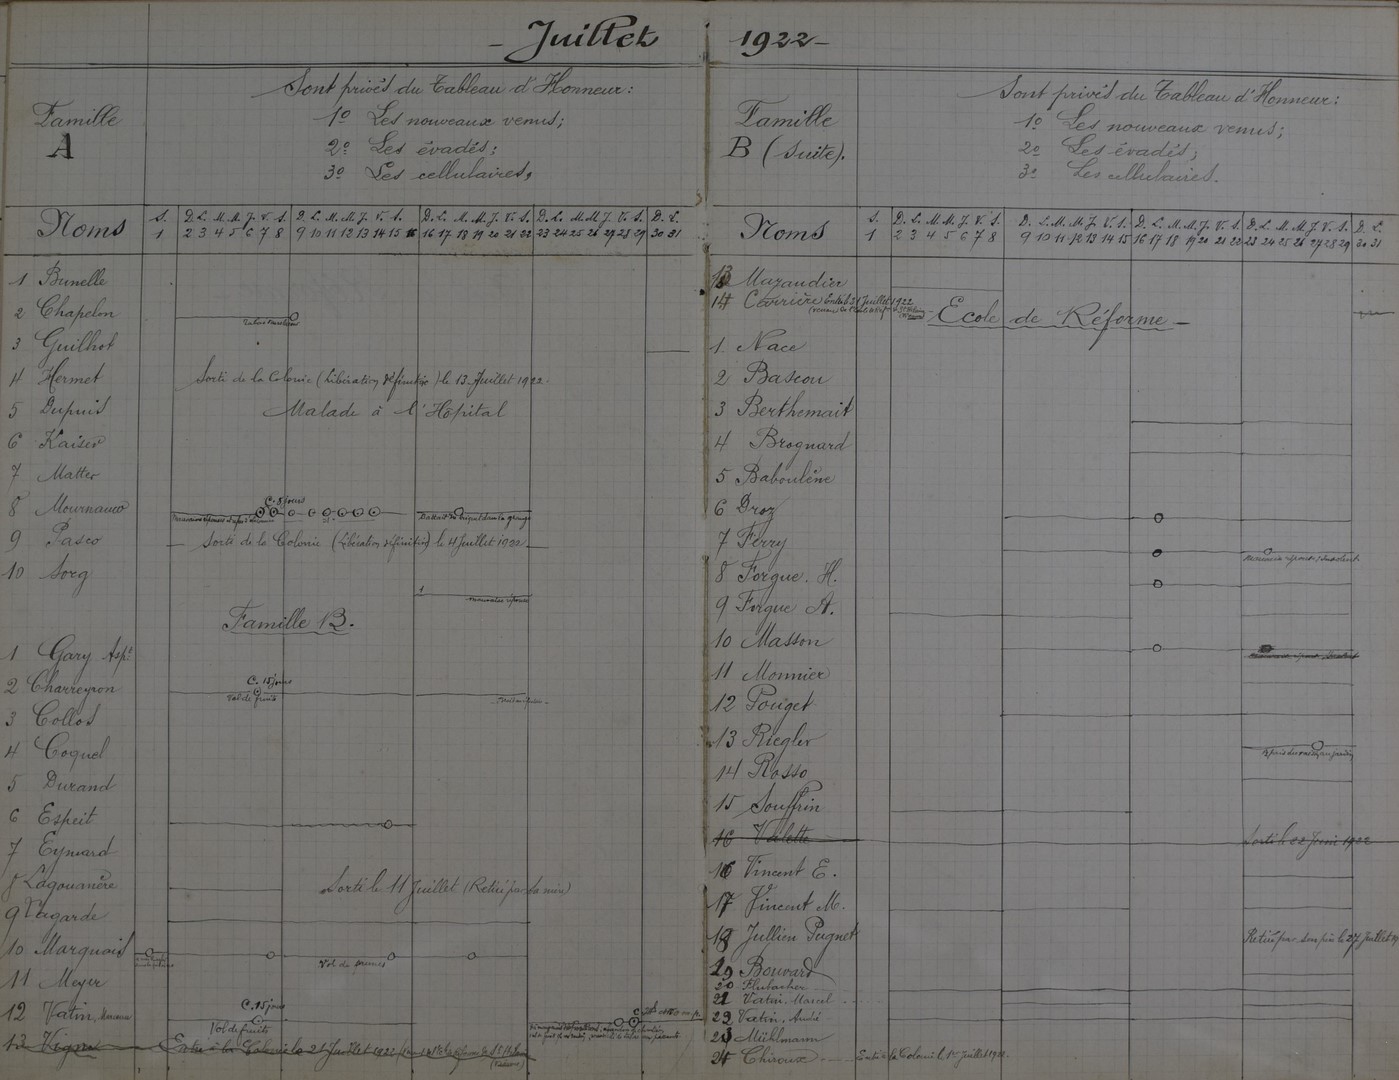 - Juillet 1922 -
Famille
A
Sont privés du Tableau d'Honneur:
1º Les nouveaux venus;
2º Les évadés;
3º Les cellulaires,
Noms
S. D. L. M. M. J. V. S. D. L. M. M. J. V. S. D. L. M. M. J. V. S. D. L. M. M. J. V. S. D. L.
1 2 3 4 5 6 7 8 9 10 11 12 13 14 15 16 17 18 19 20 21 22 23 24 25 26 27 28 29 30 31
1 Brunelle
2 Chapelon
3 Guilhot
4 Hermet Sorti de la Colonie (Libération définitive) le 13 Juillet 1922.
5 Dupuis Malade à l'Hôpital
6 Kaiser
7 Matter
C. 8 jours
8
9 Pasco Sorti de la Colonie (Libération définitive) le 4 Juillet 1922
10 Sorg
Famille B.
1 Gary Aspt
C. 15 jours
2 Charreyron
Vol de fruits
3 Collos
4 Coquel
5 Durand
6 Espeit
7 Eymard
8 Lagouanère Sorti le 11 Juillet (Retiré par sa mère)
9 Lagarde
10 Marquais
Vol de prunes
11 Meyer
C. 15 jours
12 Vatin
Vol de fruits
13 Vigne Entré à la Colonie le 21 Juillet 1922
Famille
B (suite).
Sont privés du Tableau d'Honneur:
1º Les nouveaux venus;
2º Les évadés;
3º Les cellulaires.
Noms
S. D. L. M. M. J. V. S. D. L. M. M. J. V. S. D. L. M. M. J. V. S. D. L. M. M. J. V. S. D. L.
1 2 3 4 5 6 7 8 9 10 11 12 13 14 15 16 17 18 19 20 21 22 23 24 25 26 27 28 29 30 31
13 Mazaudier
14 Juillet 1922
Ecole de Réforme -
1 Nace
2 Bascou
3 Berthomait
4 Brognard
5 Baboulène
6 Droz
7 Ferry
8 Forgue. H.
9 Forgue A.
10 Masson
11 Monnier
12 Pouget
13 Riegler
14 Rosso
15 Souffrin
16 Valette Sorti le 22 1922
16 Vincent E.
17 Vincent M.
18 Jullien Pugnet Retiré par son père le 27 Juillet
19 Bouvard
20 Flubacher
21 Vatin. Marcel
22 Vatin. André
23 Mühlmann
24 Chiroux Entré à la Colonie le 1er Juillet 1922.